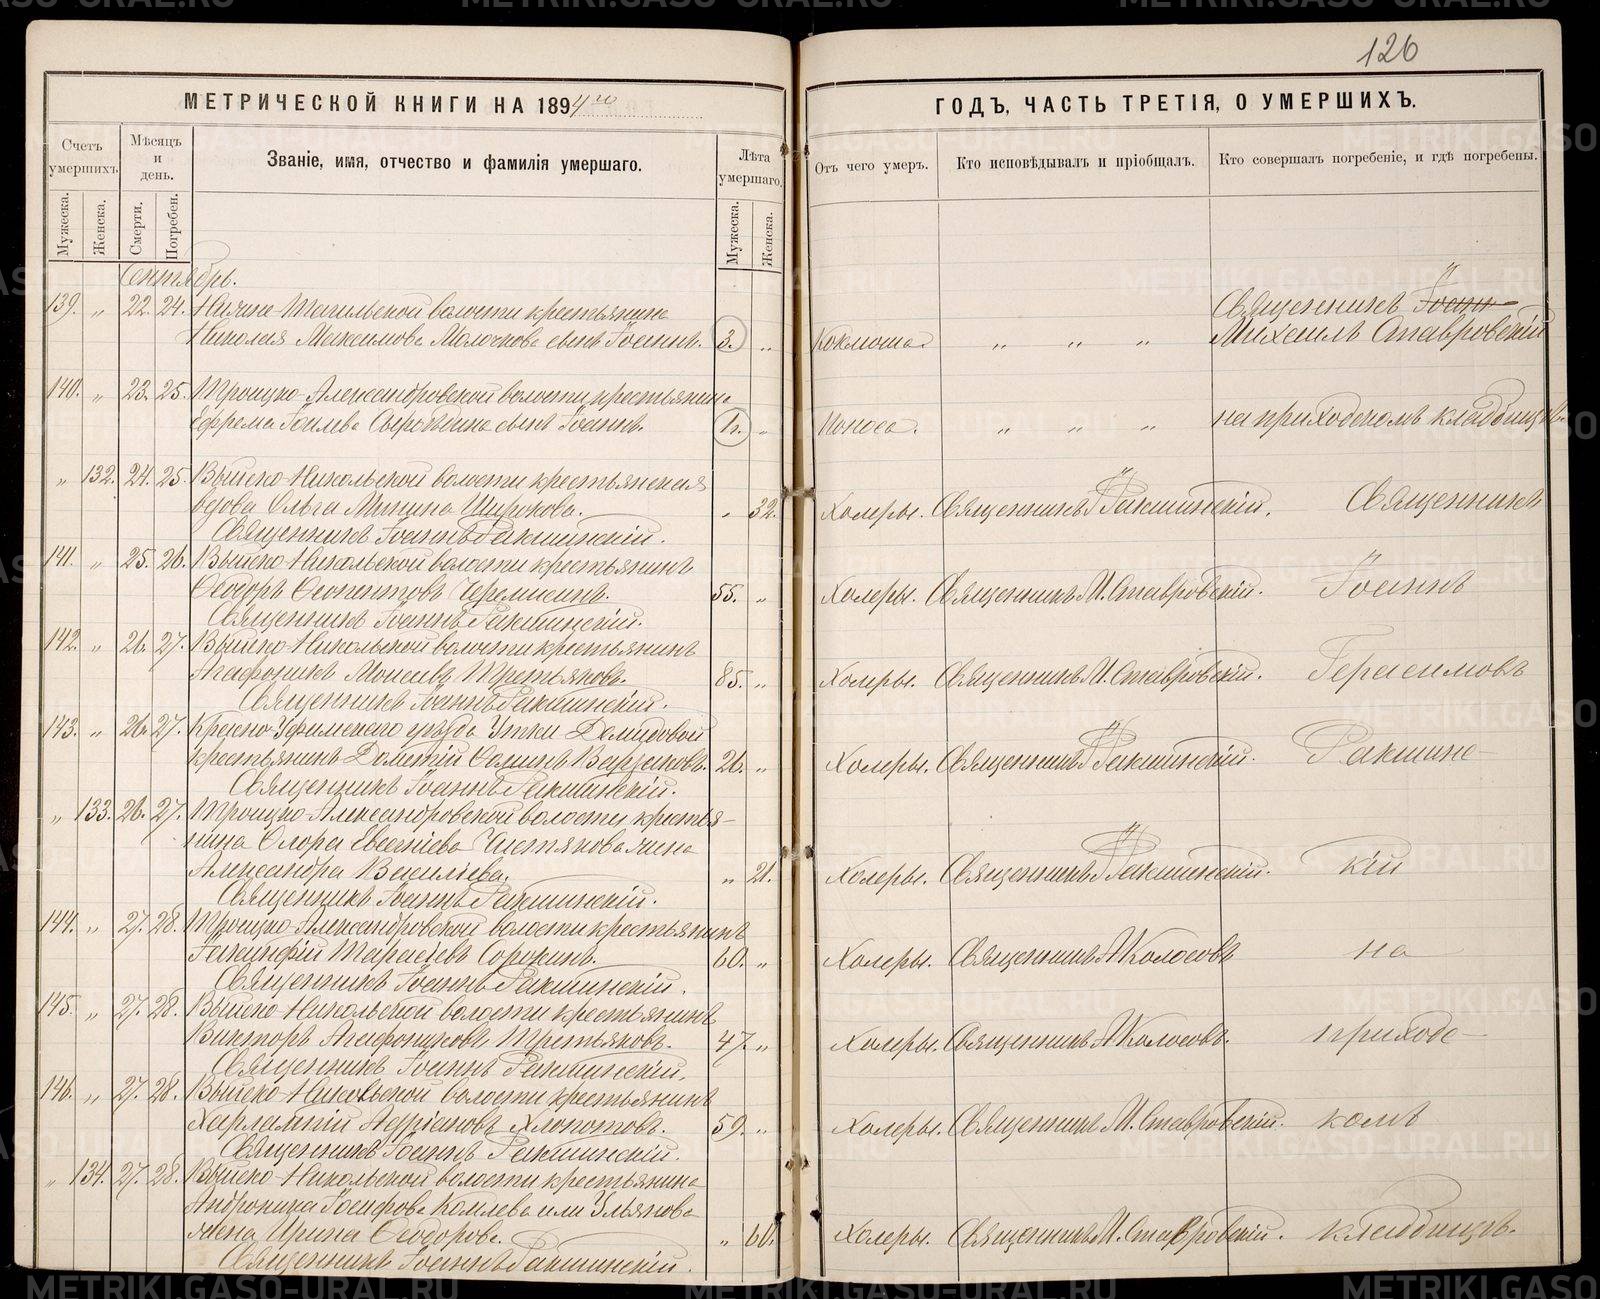 126
МЕТРИЧЕСКОЙ КНИГИ НА 1894 го
ГОДЪ, ЧАСТЬ ТРЕТІЯ, О УМЕРШИХЪ.
Счетъ умершихъ.
Мужеска.
Женска.
Мѣсяцъ и день.
Смерти.
Погребен.
Званіе, имя, отчество и фамилія умершаго.
Лѣта умершаго.
Мужеска.
Женска.
Отъ чего умеръ.
Кто исповѣдывалъ и пріобщалъ.
Кто совершалъ погребеніе, и гдѣ погребены.
Сентябрь.
139. „ 22. 24. Нижне-Тагильской волости крестьянина
Николая Максимова Молочкова сынъ Іоаннъ. 3. „ Коклюша. „ „ „
Священникъ Іоанн
Михаилъ Ставровскій
140. „ 23. 25. Троицко-Александровской волости крестьянина
Ефрема сынъ Іоаннъ. „ Поноса. „ „ „ на приходскомъ кладбищѣ.
„ 132. 24. 25. Выйско-Никольской волости крестьянская
вдова Ольга Широкова. „ 32. Холеры. Священникъ І. Ракшинскій. Священникъ
Священникъ Іоаннъ Ракшинскій.
141. „ 25. 26. Выйско-Никольской волости крестьянинъ
Ѳеодоръ Ѳеопемптовъ Черемисинъ. 55. „ Холеры. Священникъ М. Ставровскій. Іоаннъ
Священникъ Іоаннъ Ракшинскій.
142. „ 26. 27. Выйско-Никольской волости крестьянинъ
Агафоникъ Моисеевъ Третьяковъ. 85. „ Холеры. Священникъ М. Ставровскій. Герасимовъ
Священникъ Іоаннъ Ракшинскій.
143. „ 26. 27. Красно-Уфимскаго уѣзда Утки Демидовой
крестьянинъ Дометій 26. „ Холеры. Священникъ І. Ракшинскій. Ракшинс-
Священникъ Іоаннъ Ракшинскій.
„ 133. 26. 27. Троицко-Александровской волости крестья-
нина Флора Евсевіева Чистякова жена
Александра Васильева. „ 21. Холеры. Священникъ І. Ракшинскій. кій
Священникъ Іоаннъ Ракшинскій.
144. „ 27. 28. Троицко-Александровской волости крестьянинъ
Іакинфій Тарасіевъ Сорокинъ. 60. „ Холеры. Священникъ А. Колосовъ на
Священникъ Іоаннъ Ракшинскій.
145. „ 27. 28. Выйско-Никольской волости крестьянинъ
Викторъ Агафониковъ Третьяковъ. 47. „ Холеры. Священникъ А. Колосовъ. приходс-
Священникъ Іоаннъ Ракшинскій.
146. „ 27. 28. Выйско-Никольской волости крестьянинъ
Харлампій Адріановъ Хлопотовъ. 59. „ Холеры. Священникъ М. Ставровскій. комъ
Священникъ Іоаннъ Ракшинскій.
„ 134. 27. 28. Выйско-Никольской волости крестьянина
Андроника Іосифова Комлева или Ульянова
жена Ирина Ѳеодорова. „ 60. Холеры. Священникъ М. Ставровскій. кладбищѣ.
Священникъ Іоаннъ Ракшинскій.
METRIKI.GASO-URAL.RU